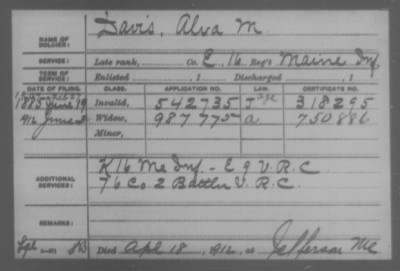 NAME OF SOLDIER: Davis, Alva M.
SERVICE: Late rank, Co. E, 16 Reg't Maine Inf.
TERM OF SERVICE: Enlisted , 1 Discharged , 1
DATE OF FILING. CLASS. APPLICATION NO. LAW. CERTIFICATE NO.
1885 June 19 Invalid, 542735 I 318295
1912 June Widow, 987775 a 750886
Minor,
ADDITIONAL SERVICES: K 16 Me Inf. - E 9 V.R.C.
76 Co. 2 Battln V.R.C.
REMARKS:
Died Apl 18, 1912, at Jefferson Me